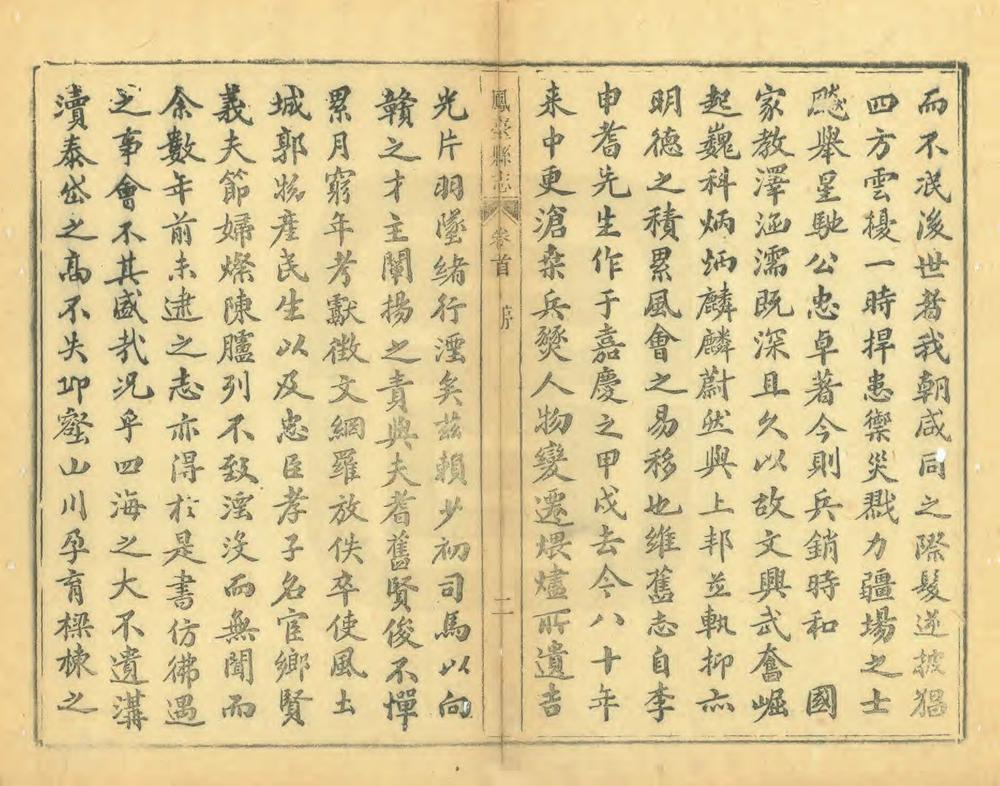 而不泯後世耆我朝咸同之際髮逆披猖
四方雲擾一時捍患禦災戮力疆場之士
飈舉星馳公忠卓著今則兵銷時和　國
家教澤涵濡既深且久以故文興武奮崛
起巍科炳炳麟麟蔚然與上邦並軌抑亦
明德之積累風會之易移也維舊志自李
申耆先生作于嘉慶之甲戌去今八十年
来中更滄桑兵燹人物變遷煨燼所遺吉
鳳臺縣志　卷首　序　二
光片羽墜緒行湮矣茲賴少初司馬以向
贛之才主闡揚之責與夫耆舊賢俊不憚
累月窮年考獻徵文網羅放佚卒使風土
城郭物產民生以及忠臣孝子名宦鄉賢
義夫節婦燦陳臚列不致淫没而無聞而
余數年前未逮之志亦得於是書仿彿遇
之事會不其盛哉况乎四海之大不遺溝
瀆泰岱之高不失邱壑山川孕育樑棟之